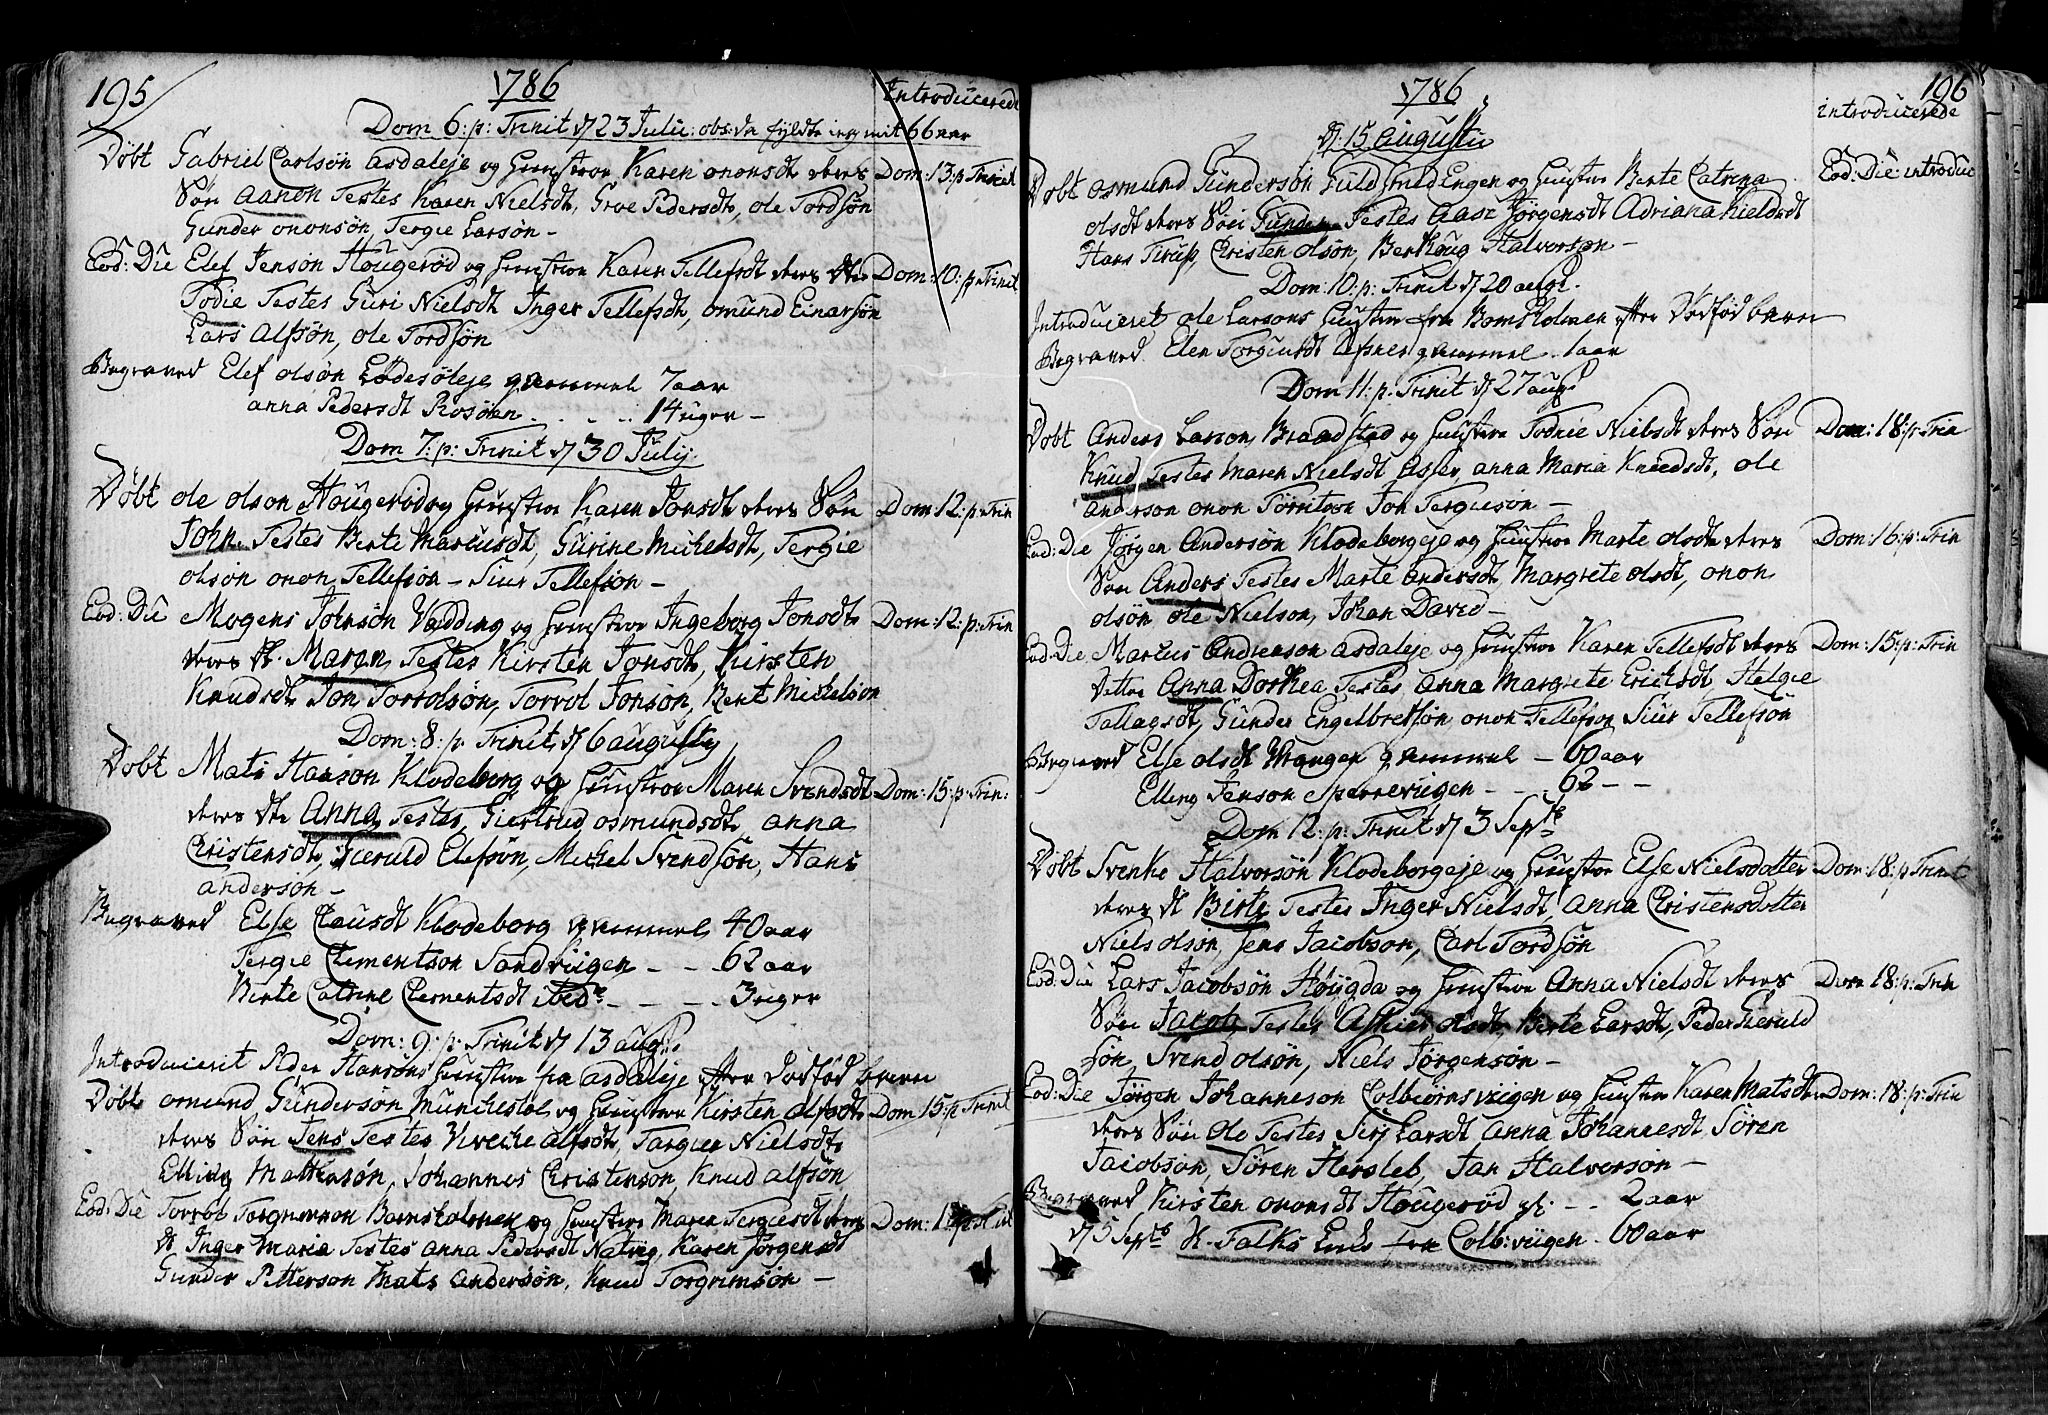 195
1786
Introducerede
Dom 6:p: Trinit d 23 Julii: obs: da fyldte ieg mit 66 aar
Døbt Gabriel Carlsøn asdaleje og Hustroe Karen ononsdt deres Dom: 13:p Trinit
Søn Aanon Testes Karen Nielsdt, Groe Pedersdt, ole Tordsøn
Gunder ononsøn, Tergie Larsøn –
Eod: Die Elef Jensøn Hougerød og Hustroe Karen Tellefsdt deres dtr Dom: 10: p Trinit
Todie Testes Guri Nielsdt Inger Tellefsdt, omund Einarsøn
Lars Alfsøn, ole Tordsøn
Begraved Elef olsøn Lødesøleje gammel 7 aar
anna Pedersdt Rosøen . . . . 14 uger –
Dom 7:p: Trinit d 30 July
Døbt ole olson Hougerød og Hustroe Karen Jonsdt deres Søn Dom: 12:p: Trin
John Testes Berte Marcusdt, Gurine Michelsdt, Tergie
olsøn onon Tellefsøn – Siur Tellefsøn –
Eod: Die Mogens Johnsøn Vedding og Hustroe Ingeborg Jonsdt Dom: 12:p: Trin
deres dt. Maren Testes Kirsten Jonsdt, Kirsten
Knudsdt Jon Torrolsøn, Torrol Jonsøn, Bent Mickelsøn
Dom: 8: p. Trinit, d 6 augusty
Døbt Mats Hanson Klodeborg og Hustroe Maren Svendsdt Dom: 15:p: Trin:
deres dtr Anna Testes, Giertrud osmundsdt, anna
Christensdt, Hieruld Elefsøn, Michel Svendsøn, Hans
andersøn –
Begraved Else Clausdt Klodeborg gammel 40 aar
Tergie Clementson Sandviigen – – 62 aar
Berte Catrine Clementsdt ibid – – – 3 uger
Dom: 9: p: Trinit d 13 aug:
Introducerit Peder Hansøns Hustroe fra asdaleje efter dødfød barn
Døbt omund Gundersøn Munchestøl og Hustroe Kirsten Alfsdt Dom 15:p Trinit
deres Søn Jens Testes Viveche Alfsdt, Targier Nielsdt
Elling Mathesøn, Johannes Christenson, Knud alfsøn
Eod: Die Torrol Torgrimson Bomsholmen og Hustroe Maren Tergiesdt deres Dom:
dt Inger Maria Testes anna Pedersdt Natvig, Karen Jørgensdt
Gunder Petterson Mats Andersøn, Knud Torgrimsøn –
1786
196
introducerede
d: 15 Augusti
Døbt osmund Gundersøn Guldsmed Engen og Hustroe Berte Catrina Eod: Die: introduc
olsdt deres Søn Gunder Testes Aase Jørgensdt Adriana Kieldsdt
Hans Tirup, Christen olsøn, Berthoug Halvorsøn –
Dom: 10: p: Trinit d 20 aug:
Introduceret ole Larsons Hustroe fra Bomsholmen efter Dødfød barn
Begraved Elen Torgiusdt Asfnes gammel . 1 aar
Dom 11: p. Trinit d 27 aug
Døbt Anders Larson Braadstad og Hustroe Todnie Nielsdt deres Søn Dom: 18:p: Trin
Knud Testes Maren Nielsdt Asser, anna Maria Knudsdt, ole
Anderson onon Torritson Jon Tergieson –
Eod: Die Jørgen Andersøn Klodeborgeje og Hustroe Marte olsdt deres Dom: 16:p: Trin
Søn Anders Testes Marte Andersdt, Margrete olsdt, onon
olsøn ole Nielson, Johan David –
Eod: Die Marcus Andreason asdaleje og Hustroe Karen Tellefsdt deres Dom: 15:p: Trin
Datter Anna Dorthea Testes Anna Margrete Erichsdt, Helgie
Tallagsdt, Gunder Engelbretsøn onon Tellefson Siur Tellefsøn
Begraved Else olsdt Vrangen gammel – 60 aar
Elling Jenson Sparreviigen – – . 62 – –
Dom 12: p: Trinit d 3 Sept
Døbt Svenke Halvorsøn Klodeborgeje og Hustroe Else Nielsdotter Dom: 18:p Trinit
deres dt Birte Testes Inger Nielsdt, Anna Christensdotter
Niels olsøn, Jens Jacobson, Carl Tordsøn
Eod: Die Lars Jacobsøn Hougda og Hustroe Anna Nielsdt deres Dom 18:p: Trin
Søn Jacob, Testes Askier olsdt, Berte Larsdt, Peder Hieruld
søn, Svend olsøn, Niels Jørgensøn –
Eod: Die Jørgen Johanneson Colbiørnsviigen og Hustroe Karen Matsdt Dom: 18:p: Trin
deres Søn ole Testes Siri Larsdt, Anna Johannesdt, Søren
Jacobsøn, Søren Hersleb, Jan Halvorsøn –
Begraved Kirsten ononsdt Hougerød gl: – – 2 aar
d 5 Sept Falks Enke fra Colb:viigen . 60 aar